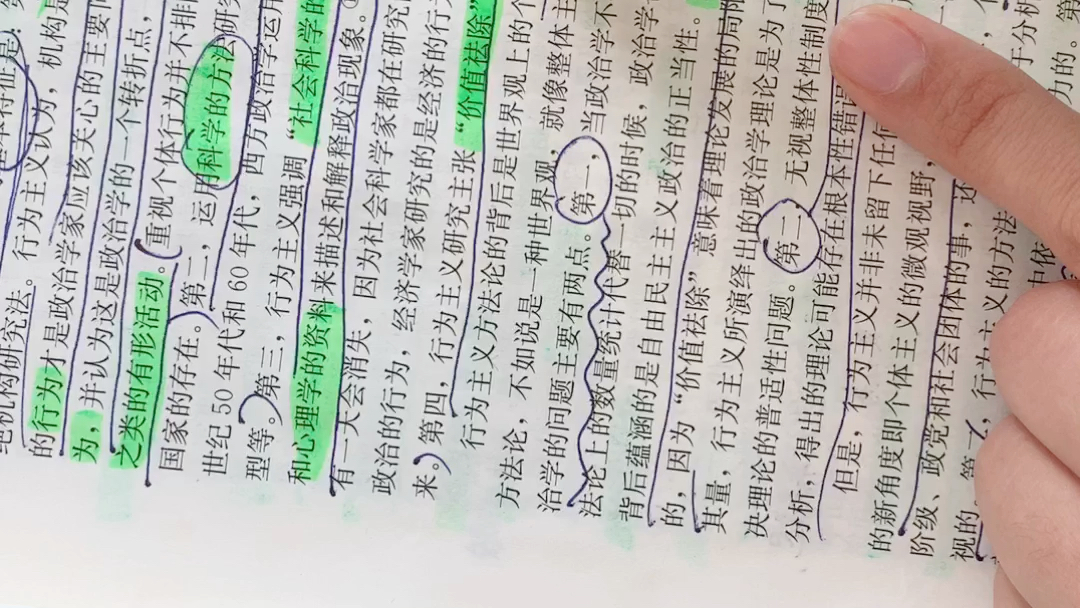 本特征是
机构研究法。行为主义认为，机构是
的行为才是政治学家应该关心的主要
为，并认为这是政治学的一个转折点，
之类的有形活动。重视个体行为并不排
国家的存在。第二，运用科学的方法研
世纪50年代和60年代，西方政治学运用
型等。第三，行为主义强调“社会科学的
和心理学的资料来描述和解释政治现象。
有一天会消失，因为社会科学家都在研究
政治的行为，经济学家研究的是经济的行
来。第四，行为主义研究主张“价值祛除”
行为主义方法论的背后是世界观上的个
方法论，不如说是一种世界观，就像整体主
治学的问题主要有两点。第一，当政治学不
法论上的数量统计代替一切的时候，政治学
背后蕴涵的是自由民主主义政治的正当性。
的，因为“价值祛除”意味着理论发展的局
其量，行为主义所演绎出的政治学理论是为了
决理论的普适性问题。第二，无视整体性制度
分析，得出的理论可能存在根本性错误
但是，行为主义并非未留下任
的新角度即个体主义的微观视野，
阶级、政党和社会团体的事，还
视的。第 行为主义的方法